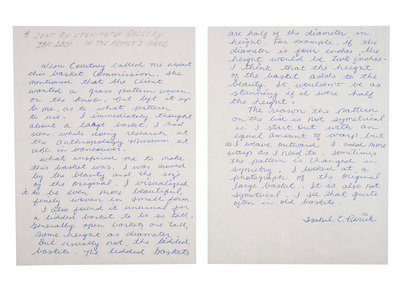 * SENT BY STONINGTON GALLERY
JAN 2001. IN THE ARTIST'S HAND
When Courtney called me about
this basket Commission, she
mentioned that the client
wanted a grass pattern woven
on the knob. But left it up
to me, as to what pattern
to use. I immediately thought
about a large basket I had
seen while doing research at
the Anthropology Museum at
UBC in Vancouver.
What inspired me to make
this basket was, I was moved
by the beauty and the size
of the original. I visualized
it to be even more beautiful
finely woven in small form.
I also found it unusual for
a lidded basket to be so tall.
Generally open baskets are tall,
same height as diameter.
But usually not the lidded
baskets. The lidded baskets
are half of the diameter in
height. For example, if the
diameter is four inches the
height would be two inches.
I think that the height
of the basket adds to the
beauty. It wouldn't be as
stunning if it were half
the height.
The reason the pattern
on the lid is not symetrical
is I start out with an
equal amount of warps but
as I weave outward I add more
warp as I need to. Sometimes
the pattern is changed in
symetry. I looked at a
photograph of the original
large basket. It is also not
symetrical. I see that quite
often in old baskets.
Isabel E. Rorick